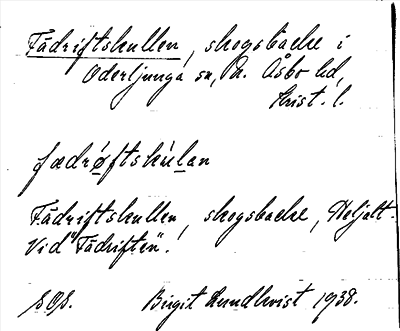 Fädriftskullen, skogsbacke i
Oderljunga sn, N. Åsbo hd,
Krist. l.
fædrøftskùlan
Fädriftskullen, skogsbacke, Heljalt.
Vid "Fädriften".
Birgit Lundkvist 1938.